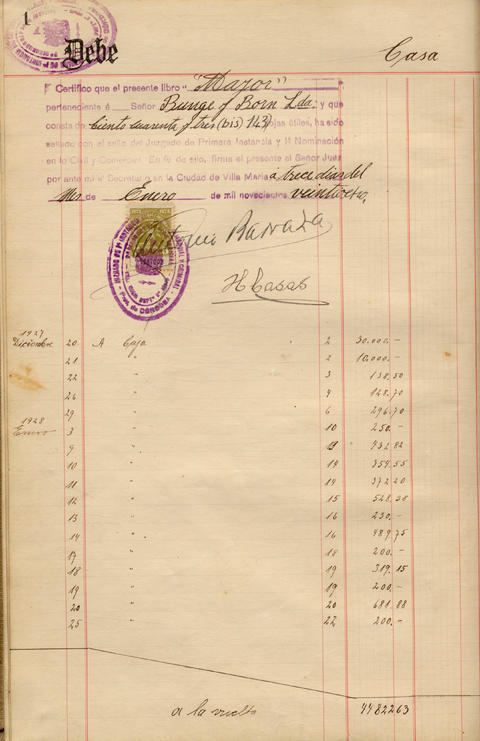 1
Debe Casa
Certifico que el presente libro "Mayor"
perteneciente á Señor Bunge y Born Lda. y que
consta de ciento cuarenta y tres (bis) 143) hojas útiles, ha sido
sellado con el sello del Juzgado de Primera Instancia y 1ª Nominación
en lo Civil y Comercial. En fé de ello, firma el presente el Señor Juez
por ante mi el Secretario en la Ciudad de Villa María a trece dias del
Mes de Enero de mil novecientos veintiocho.
Antonio
H Casas
1927
Diciembre 20 A Caja 2 30.000.-
21 " 2 10.000.-
22 " 3 138.50
26 " 4 128.70
29 " 6 296.70
1928
Enero 3 " 10 250.-
9 " 9 432.82
10 " 14 359.55
11 " 14 372.20
12 " 15 528.38
13 " 16 230.-
14 " 16 489.75
17 " 18 200.-
18 " 19 319.15
19 " 19 200.-
20 " 20 681.88
25 " 22 200.-
a la vuelta 4482263